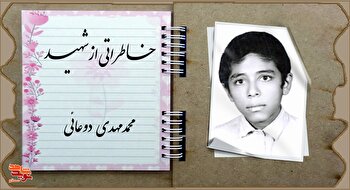 خاطراتی از شهید
محمدمهدی دوعانی